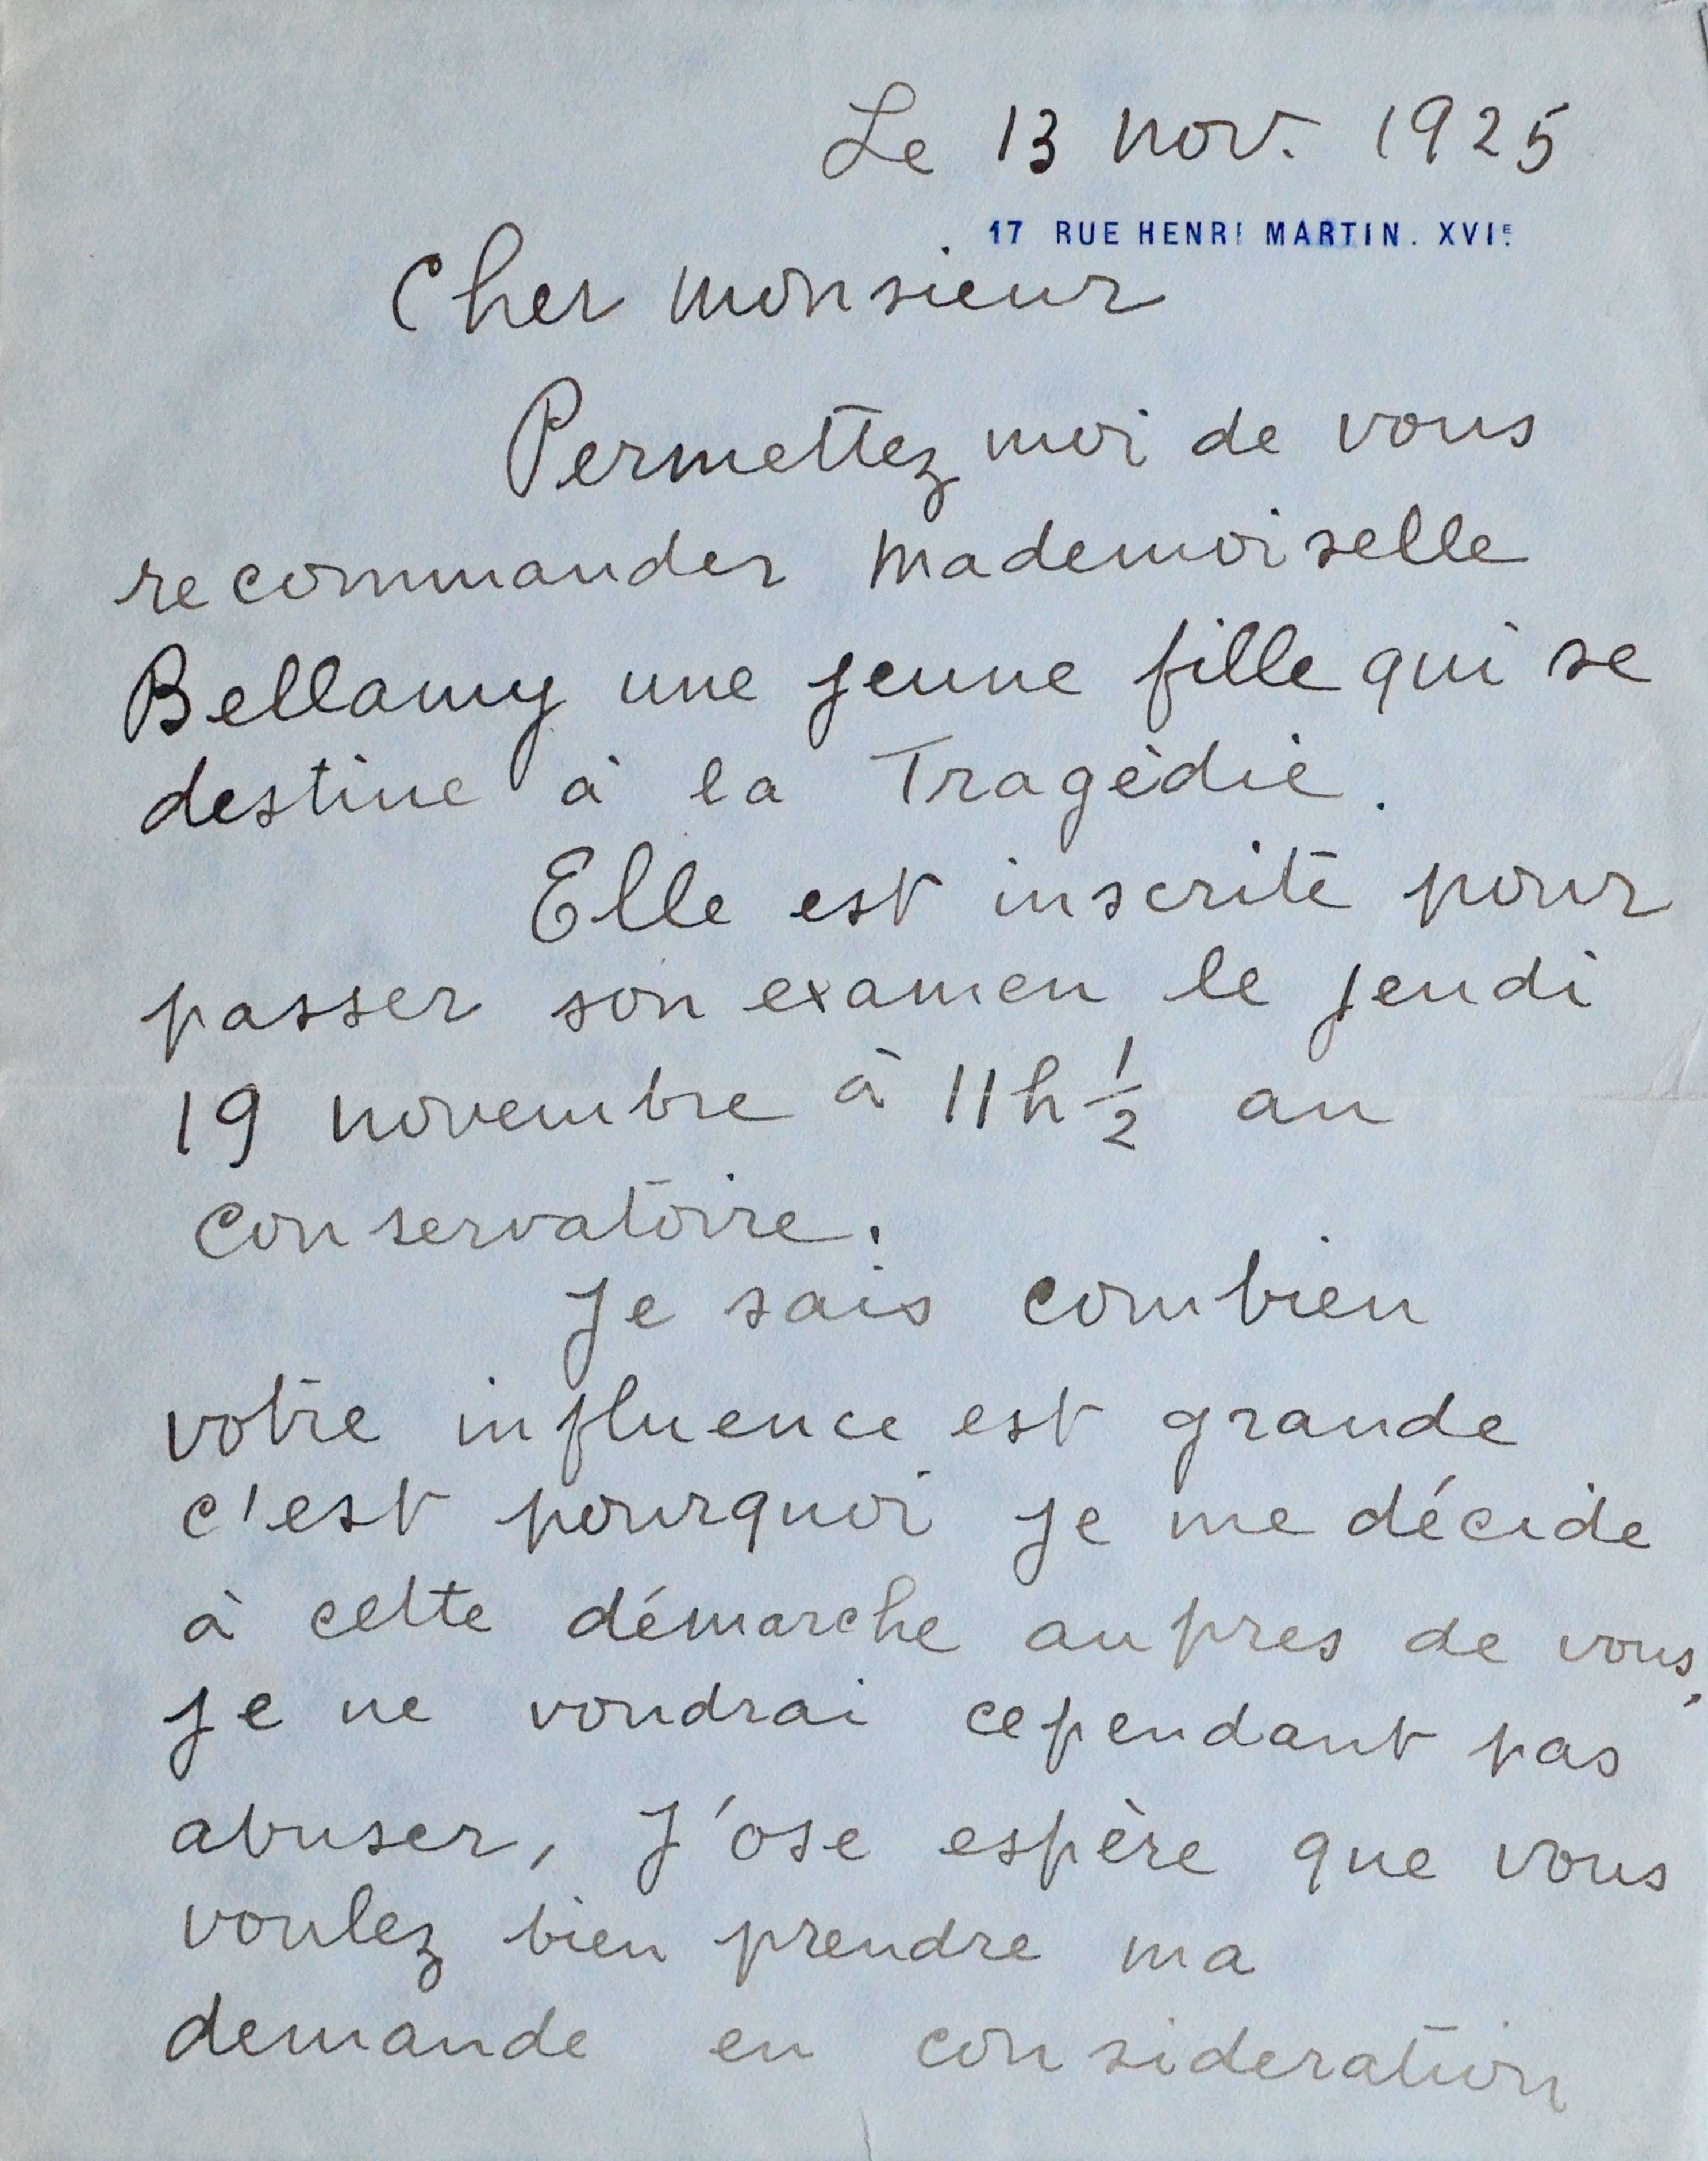 Le 13 nov. 1925
17 RUE HENRI MARTIN. XVIE.
Cher monsieur
Permettez moi de vous
recommander Mademoiselle
Bellamy une jeune fille qui se
destine à la Tragédie.
Elle est inscrite pour
passer son examen le jeudi
19 novembre à 11h 1/2 au
Conservatoire.
Je sais combien
votre influence est grande
c'est pourquoi je me décide
à cette démarche aupres de vous,
je ne voudrai cependant pas
abuser, J'ose espère que vous
voulez bien prendre ma
demande en consideration